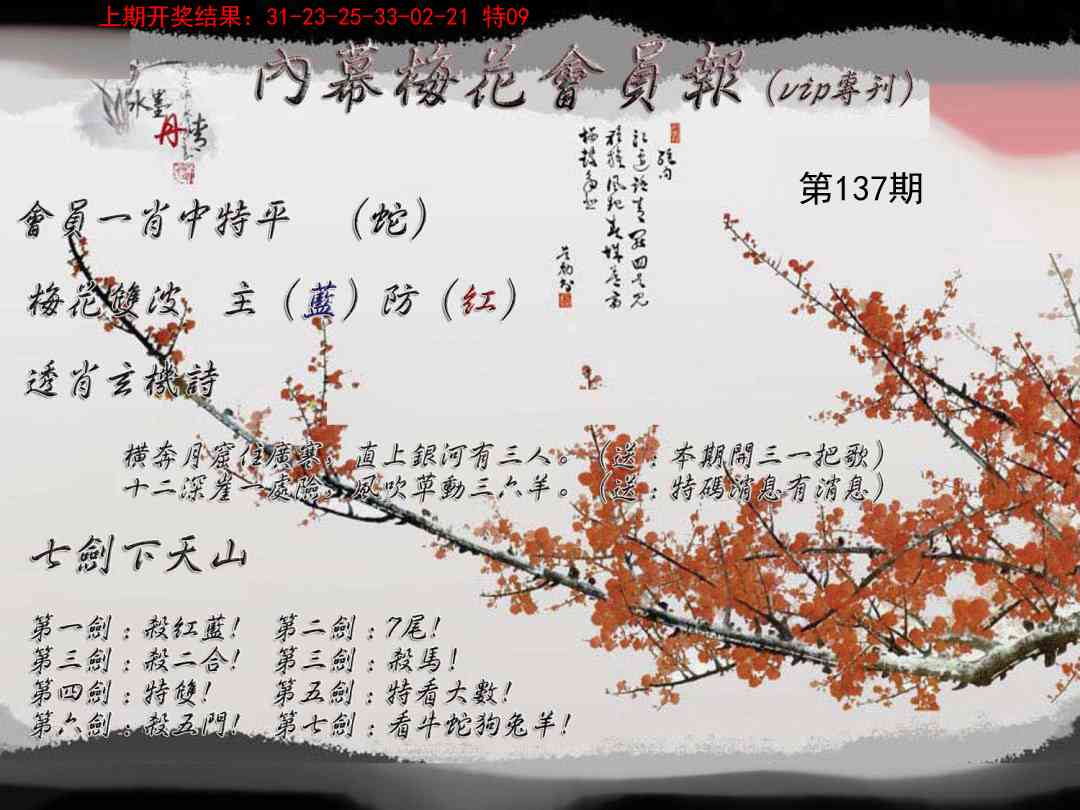 上期开奖结果：31-23-25-33-02-21 特09
內幕梅花會員報（vip專刊）
水墨
丹青
第137期
會員一肖中特平 （蛇）
梅花雙波 主（藍）防（紅）
透肖玄機詩
橫奔月窟住廣寒，直上銀河有三人。（送：本期開三一把歌）
十二深崖一處險，風吹草動三六羊。（送：特碼消息有消息）
七劍下天山
第一劍：殺紅藍！ 第二劍：7尾！
第三劍：殺二合！ 第三劍：殺馬！
第四劍：特雙！ 第五劍：特看大數！
第六劍：殺五門！ 第七劍：看牛蛇狗兔羊！